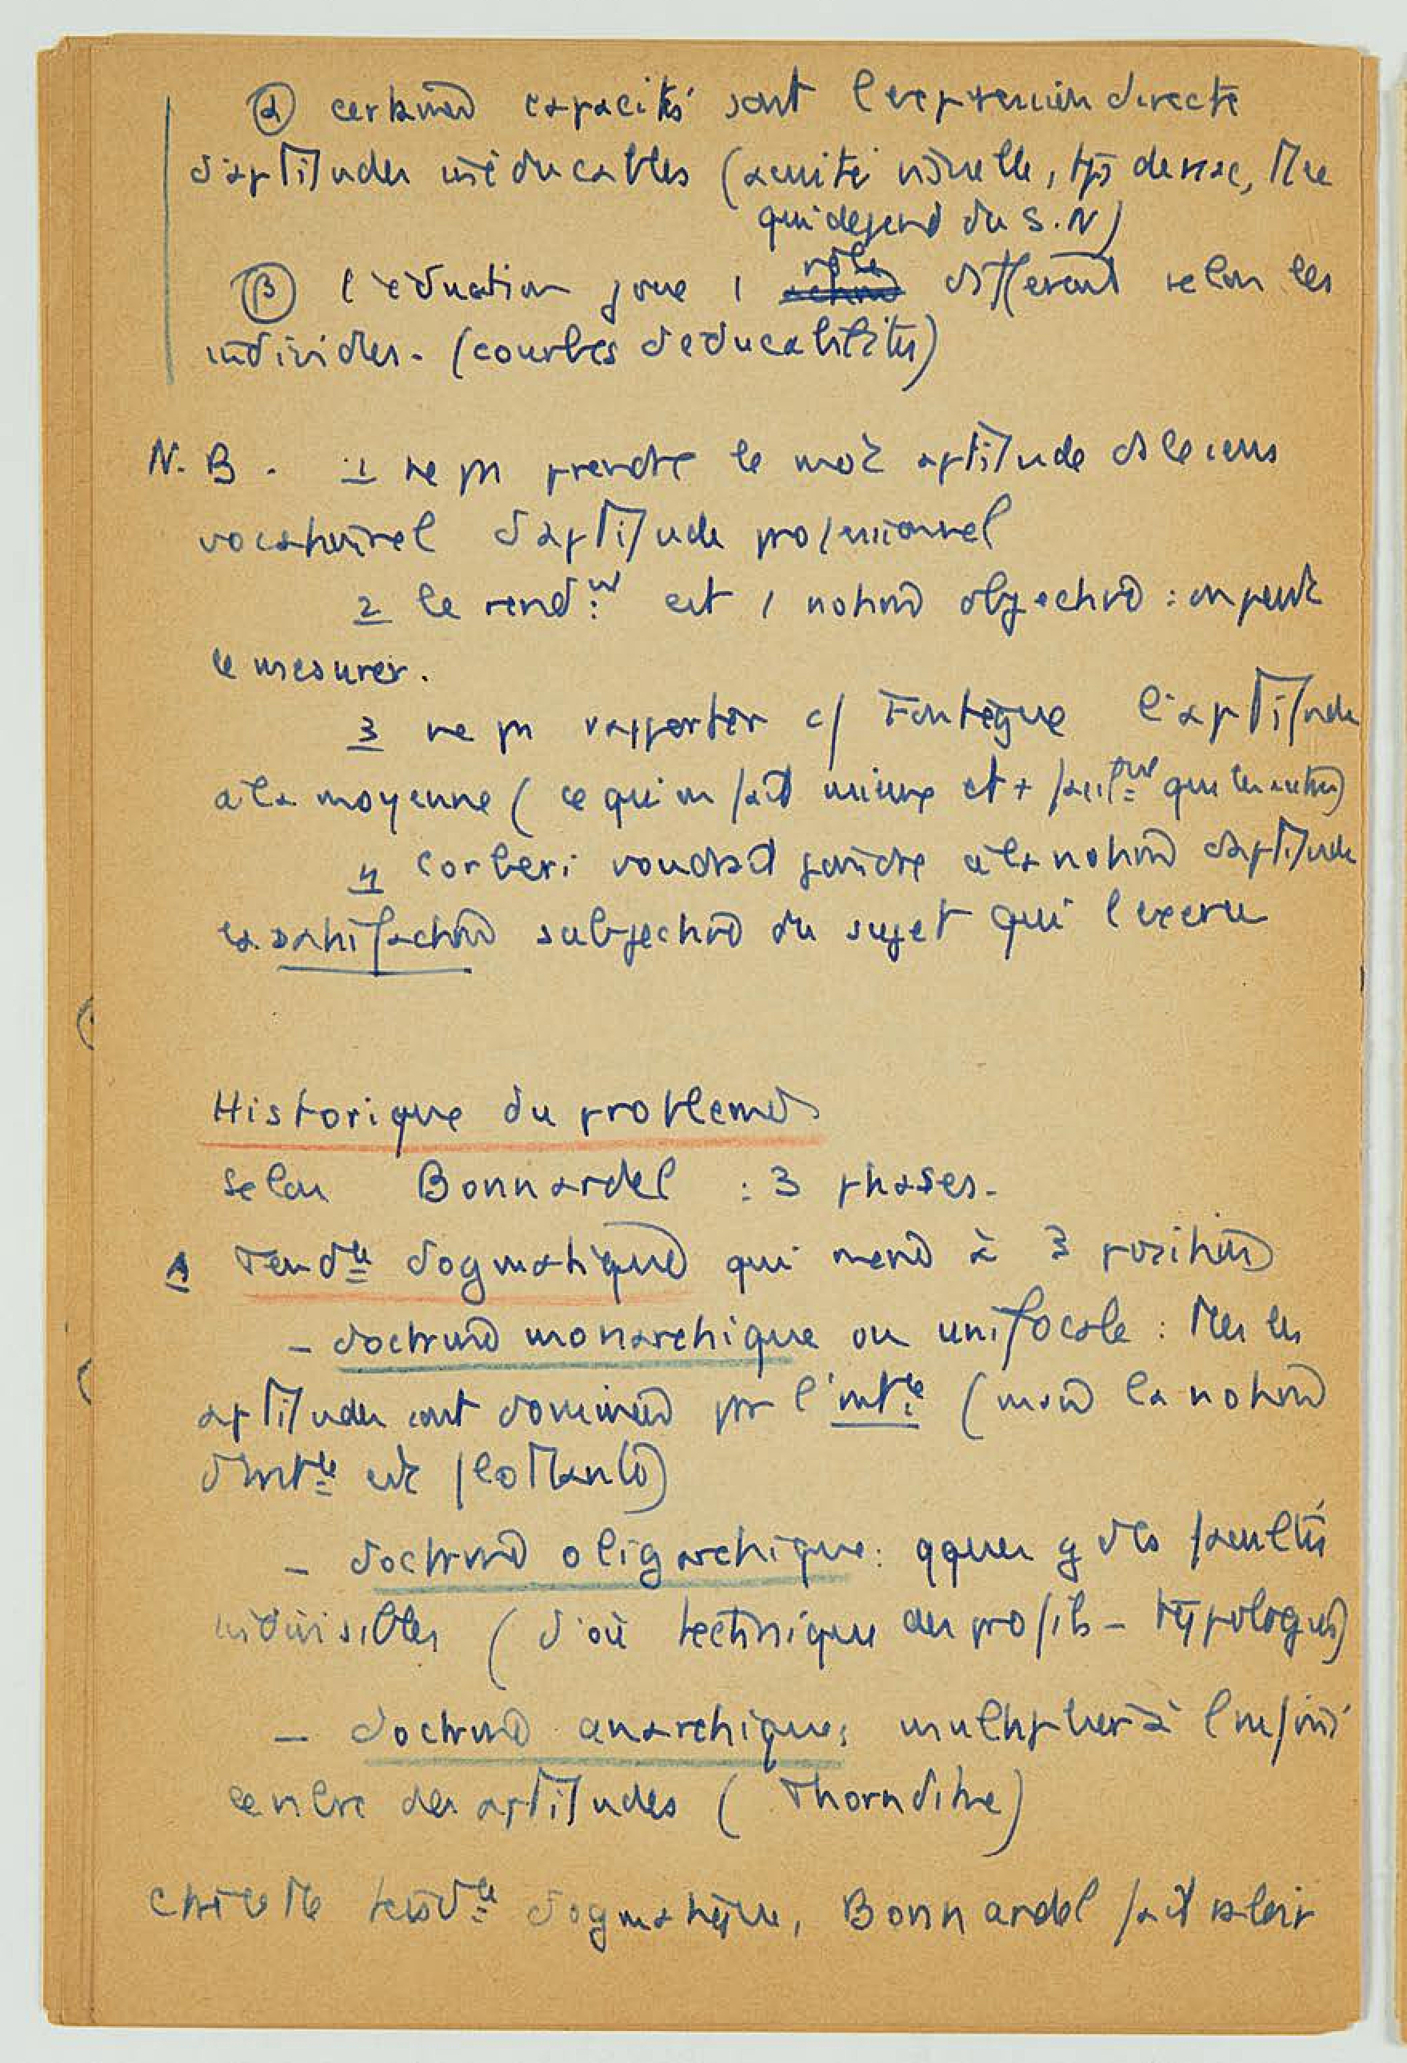 α certaines capacités sont l'expression directe
d'aptitudes inéducables (acuité visuelle, tps de réac, tt ce
qui dépend du S.N)
β l'éducation joue 1 rôle différent selon les
individus. (courbes d'éducabilités)
N.B. 1 ne pas prendre le mot aptitude ds le sens
d'aptitude professionnel
2 le rend.nt est 1 notion objective : on peut
le mesurer.
3 ne pas rapporter c/ Fontègne l'aptitude
à la moyenne (ce qu'on fait mieux et + facil.nt que les autres)
4 Corberi voudrait joindre à la notion d'aptitude
la satisfaction subjective du sujet qui l'exerce
Historique du problème
selon Bonnardel : 3 phases.
A Tend.ce dogmatique qui mène à 3 positions
- doctrine monarchique ou unifocale : ttes les
aptitudes sont dominées par l'int.ce (mais la notion
d'int.ce est flottante)
- doctrine oligarchique : qques gdes facultés
indivisibles (d'où technique des profils - typologies)
- doctrine anarchique : multiplier à l'infini
le nbre des aptitudes (Thorndike)
tte tend.ce dogmatique, Bonnardel fait valoir